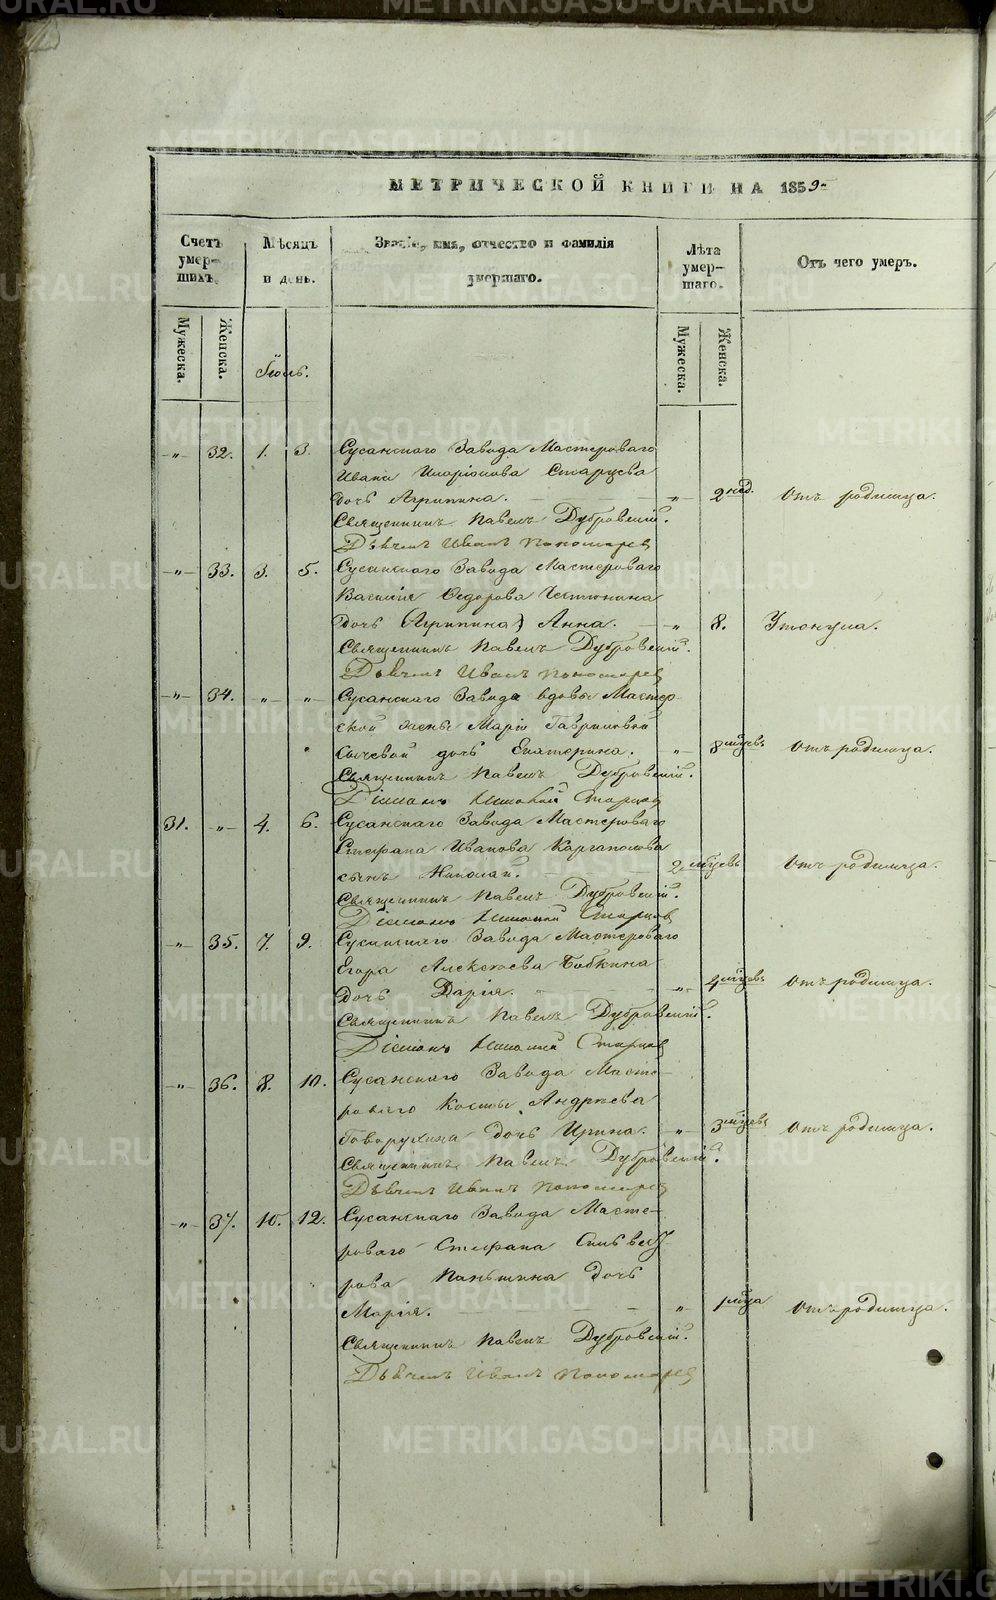 МЕТРИЧЕСКОЙ КНИГИ НА 1859
Счетъ умер-шихъ.
Мѣсяцъ и день.
Званіе, имя, отчество и фамилія умершаго.
Лѣта умер-шаго.
Отъ чего умеръ.
Мужеска.
Женска.
Мужеска.
Женска.
Іюль.
-„- 32. 1. 3. Сусанскаго Завода Мастероваго
Ивана Иларіонова Старцева
дочь Агрипина. „ 2 нед. Отъ родимца.
Священникъ Павелъ Дубровскій.
Дьячекъ Иванъ Пономарев
-„- 33. 3. 5. Сусанскаго Завода Мастероваго
Василія Ѳедорова
дочь (Агрипина) Анна. „ 8. Утонула.
Священникъ Павелъ Дубровскій.
Дьячекъ Иванъ Пономарев
-„- 34. „ „ Сусанскаго Завода вдовы Мастер-
ской жены Маріи Гавриловой
Сычевой дочь Екатерина. „ 8 мцевъ Отъ родимца.
Священникъ Павелъ Дубровскій.
Діаконъ Старцов
31. -„- 4. 6. Сусанскаго Завода Мастероваго
Стефана Иванова Каргаполова
сынъ Николай. 2 мцевъ Отъ родимца.
Священникъ Павелъ Дубровскій.
Діаконъ Старцов
-„- 35. 7. 9. Сусанскаго Завода Мастероваго
Егора Алексѣева Бабкина
дочь Дарія. „ 4 мцевъ Отъ родимца.
Священникъ Павелъ Дубровскій.
Діаконъ Старцов
-„- 36. 8. 10. Сусанскаго Завода Масте-
роваго Косьмы Андреева
Говорухина дочь Ирина. „ 3 мцевъ Отъ родимца.
Священникъ Павелъ Дубровскій.
Дьячекъ Иванъ Пономарев
-„- 37. 10. 12. Сусанскаго Завода Масте-
роваго Стефана Сильвест-
рова Паньшина дочь
Марія. „ Отъ родимца.
Священникъ Павелъ Дубровскій.
Дьячекъ Иванъ Пономарев
METRIKI.GASO-URAL.RU